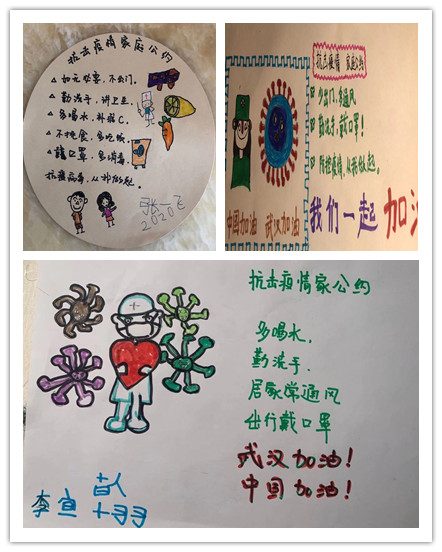 抗击疫情家庭公约
如无必要，不出门。
勤洗手，讲卫生。
多喝水，补充C。
不挑食，多吃饭。
戴口罩，多消毒。
抗击病毒，从我做起。
张一飞
2020
抗击疫情 家庭公约
少出门，多通风
勤洗手，戴口罩！
防控疫情，从我做起。
中国加油 武汉加油
我们一起加油
抗击疫情家公约
多喝水，
勤洗手．
居家常通风
出行戴口罩
武汉加油！
中国加油！
李宜